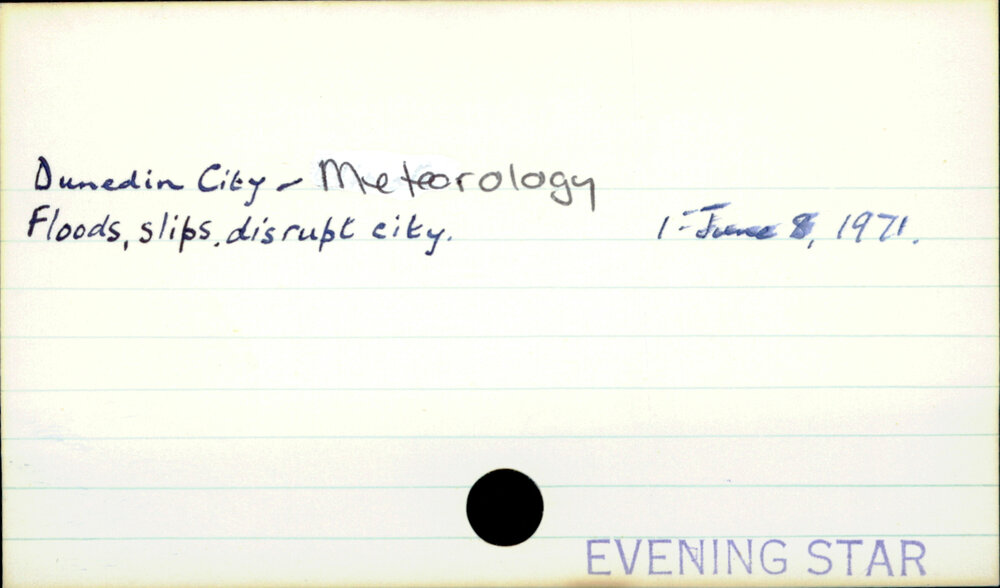 Dunedin City - Meteorology
Floods, slips, disrupt city. 1 - June 8, 1971.
EVENING STAR